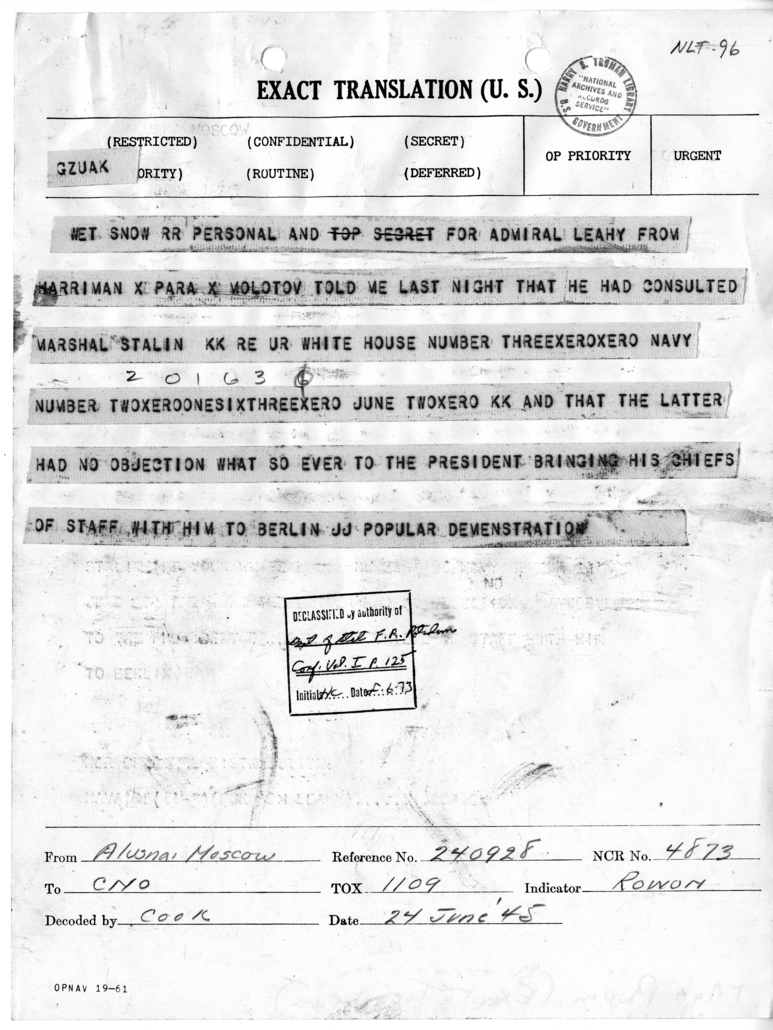 NLT-96
EXACT TRANSLATION (U. S.)
HARRY S. TRUMAN LIBRARY
"NATIONAL
ARCHIVES AND
RECORDS
SERVICE"
U.S. GOVERNMENT
MOSCOW
(RESTRICTED) (CONFIDENTIAL) (SECRET)
OP PRIORITY URGENT
GZUAK ORITY) (ROUTINE) (DEFERRED)
WET SNOW RR PERSONAL AND TOP SECRET FOR ADMIRAL LEAHY FROM
HARRIMAN X PARA X MOLOTOV TOLD ME LAST NIGHT THAT HE HAD CONSULTED
MARSHAL STALIN KK RE UR WHITE HOUSE NUMBER THREEXEROXERO NAVY
2 0 1 6 3 0
NUMBER TWOXEROONESIXTHREEXERO JUNE TWOXERO KK AND THAT THE LATTER
HAD NO OBJECTION WHAT SO EVER TO THE PRESIDENT BRINGING HIS CHIEFS
OF STAFF WITH HIM TO BERLIN JJ POPULAR DEMENSTRATION
NO
TO BERLIN
DECLASSIFIED by authority of
Dept of State F.R. Potsdam
Conf. Vol. I P. 125
Initials Date 6-73
From Alusna, Moscow Reference No. 240928 NCR No. 4873
To CNO TOX 1109 Indicator ROWON
Decoded by COOK Date 24 June '45
OPNAV 19-61